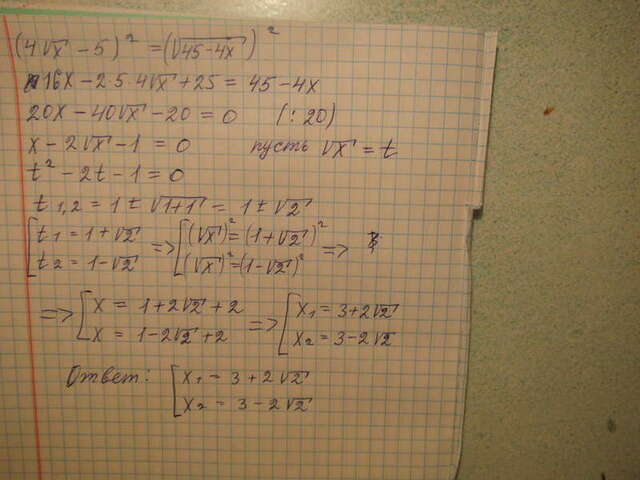 (4√x - 5)² = (√45-4x)²
16x - 2·5·4√x + 25 = 45 - 4x
20x - 40√x - 20 = 0 (:20)
x - 2√x - 1 = 0 пусть √x = t
t² - 2t - 1 = 0
t 1,2 = 1 ± √1+1 = 1 ± √2
[t1 = 1+√2 => [(√x)² = (1+√2)² =>
t2 = 1-√2 (√x)² = (1-√2)²
=> [x = 1+2√2+2 => [x1 = 3+2√2
x = 1-2√2+2 x2 = 3-2√2
Ответ: [x1 = 3+2√2
x2 = 3-2√2